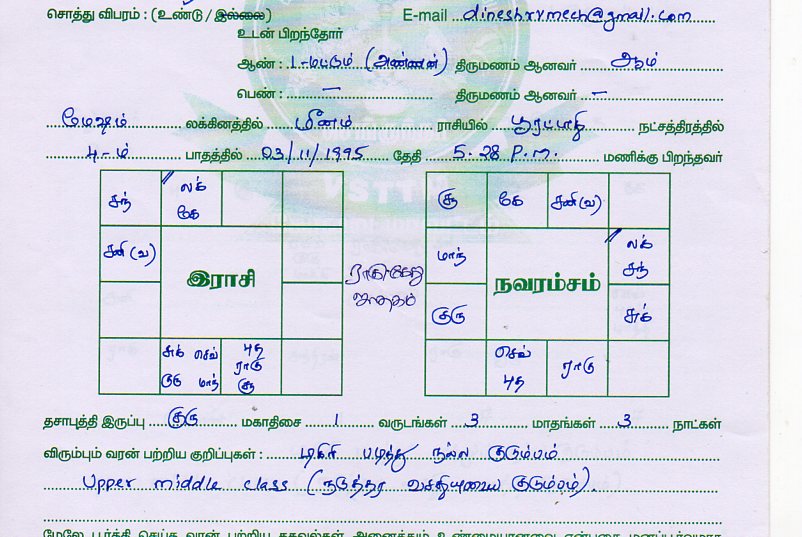 சொத்து விபரம் : (உண்டு / இல்லை) E-mail ...dineshrvmech@gmail.com
உடன் பிறந்தோர்
ஆண் : 1-மட்டும் (அண்ணன்) திருமணம் ஆனவர் ... ஆம்
பெண் : — திருமணம் ஆனவர் ... —
மேஷம் லக்கினத்தில் மீனம் ராசியில் பூரட்டாதி நட்சத்திரத்தில்
4-ம் பாதத்தில் 03/11/1995 தேதி 5.28 P.m. மணிக்கு பிறந்தவர்
சந் லக் கே
சனி (வ)
இராசி
சுக் செவ் குரு மாந் புத ராகு சூ
ராகு கேது ஜாதகம்
சூ கே சனி (வ)
மாந் லக் சந்
நவரம்சம்
குரு சுக்
செவ் புத ராகு
தசாபுத்தி இருப்பு ... குரு ... மகாதிசை ... 1 ... வருடங்கள் ... 3 ... மாதங்கள் ... 3 ... நாட்கள்
விரும்பும் வரன் பற்றிய குறிப்புகள் : டிகிரி படித்த நல்ல குடும்பம்
Upper middle class (நடுத்தர வசதியுடைய குடும்பம்).
மேலே பூர்த்தி செய்த வரன் பற்றிய தகவல்கள் அனைத்தும் உண்மையானவை என்பதை மனப்பூர்வமாக